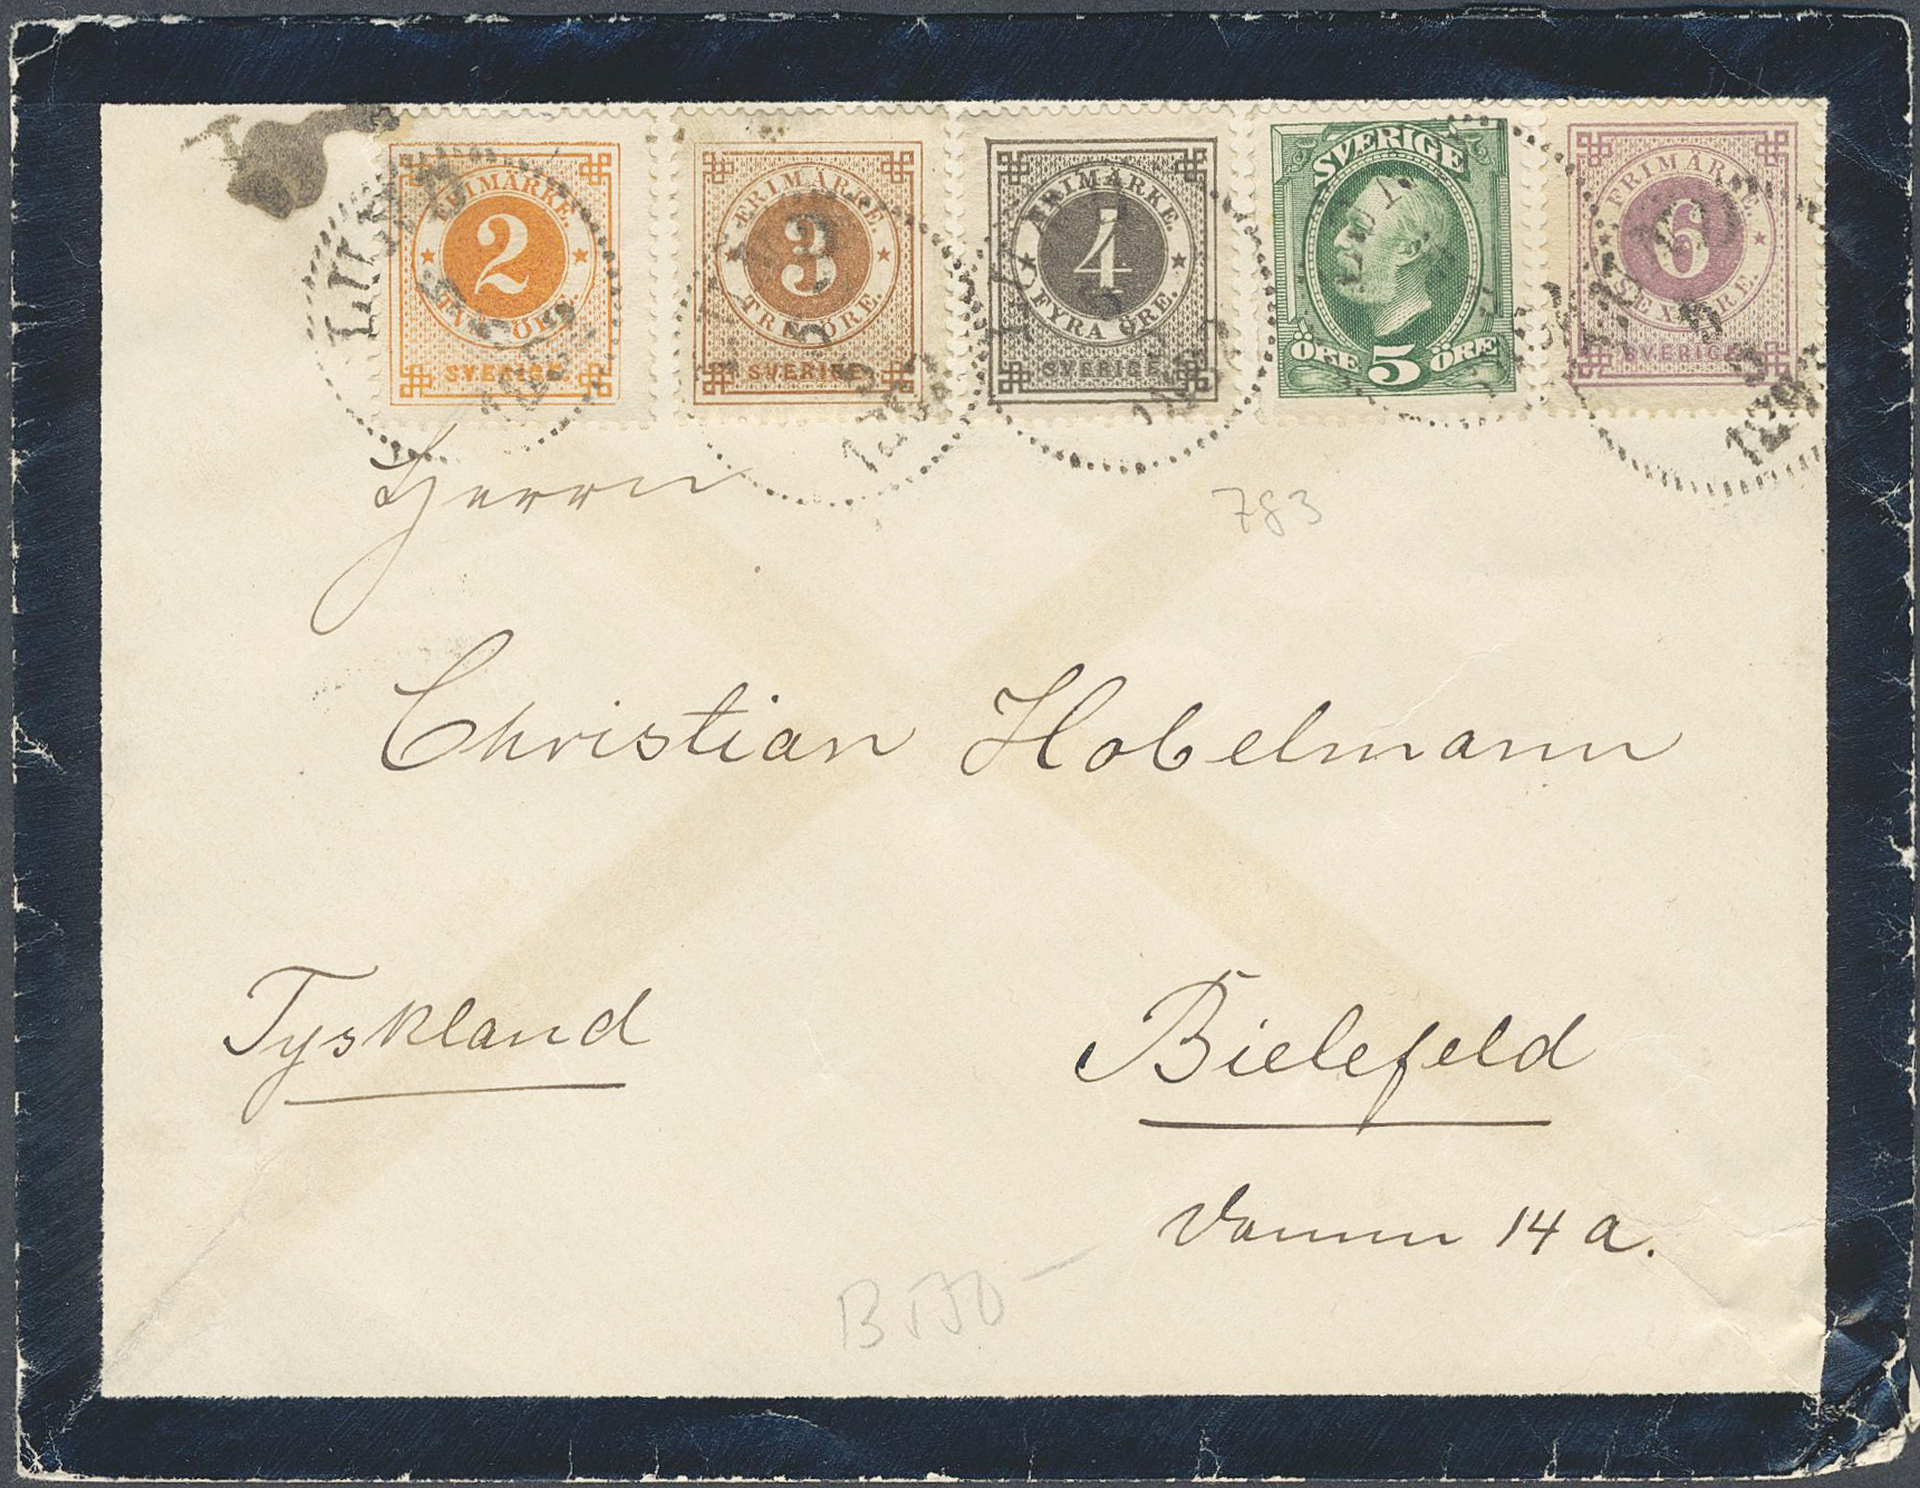 FRIMÄRKE. 2 TVÅ ÖRE. SVERIGE
FRIMÄRKE. 3 TRE ÖRE. SVERIGE
FRIMÄRKE. 4 FYRA ÖRE. SVERIGE
SVERIGE ÖRE 5 ÖRE
FRIMÄRKE. 6 SEX ÖRE. SVERIGE
LUND
Herrn
783
Christian Hobelmann
Tyskland
Bielefeld
14 a.